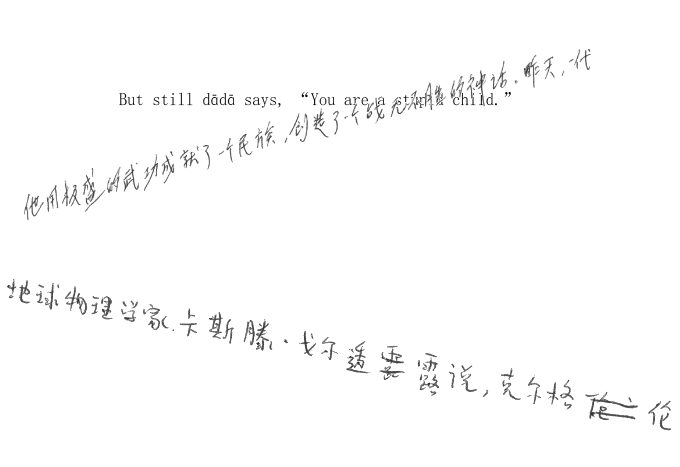 But still dādā says, “You are a stupid child.”
他用极盛的武功成就了一个民族，创造了一个战无不胜的神话。昨天，一代
地球物理学家卡斯滕·戈尔透露说，克尔格伦